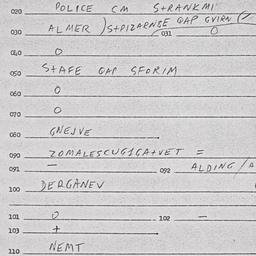 020 POLICE CM STRANKMI
030 ALMER )S+PIZARNSE GAP GVIRN
031 O
040 O
050 S+AFE GAP SFORIM
060 O
070 O
080 GNEJVE
090 ZOMALESCUGIGA+VET =
091 — 092 ALDING/A
100 DERGANEV
101 O 102 —
103 +
110 NEMT